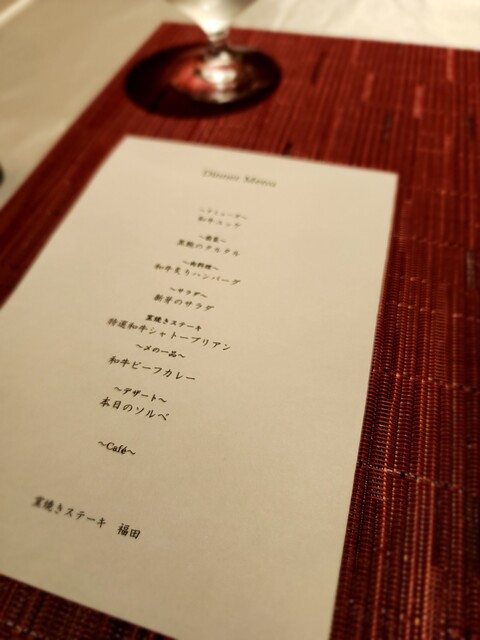 Dinner Menu
和牛ユッケ
～前菜～
黒鮑のタルタル
～肉料理～
和牛炙りハンバーグ
～サラダ～
新芽のサラダ
窯焼きステーキ
特選和牛シャトーブリアン
～〆の一品～
和牛ビーフカレー
～デザート～
本日のソルベ
～Café～
窯焼きステーキ 福田